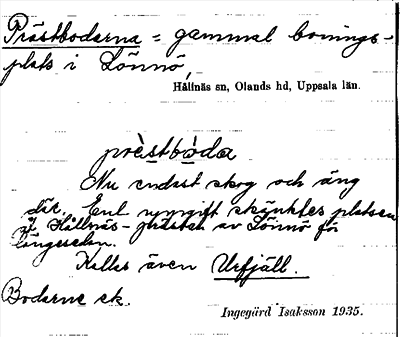 Prästbodarna = gammal bonings-
plats i Lönnö,
Hållnäs sn, Olands hd, Uppsala län.
prèstbòda
Nu endast skog och äng
där. Enl uppgift skänktes platsen
af Hållnäs-prästen av Lönnö för
länge sedan.
Kallas även Urfjäll.
Bodarne ek.
Ingegärd Isaksson 1935.